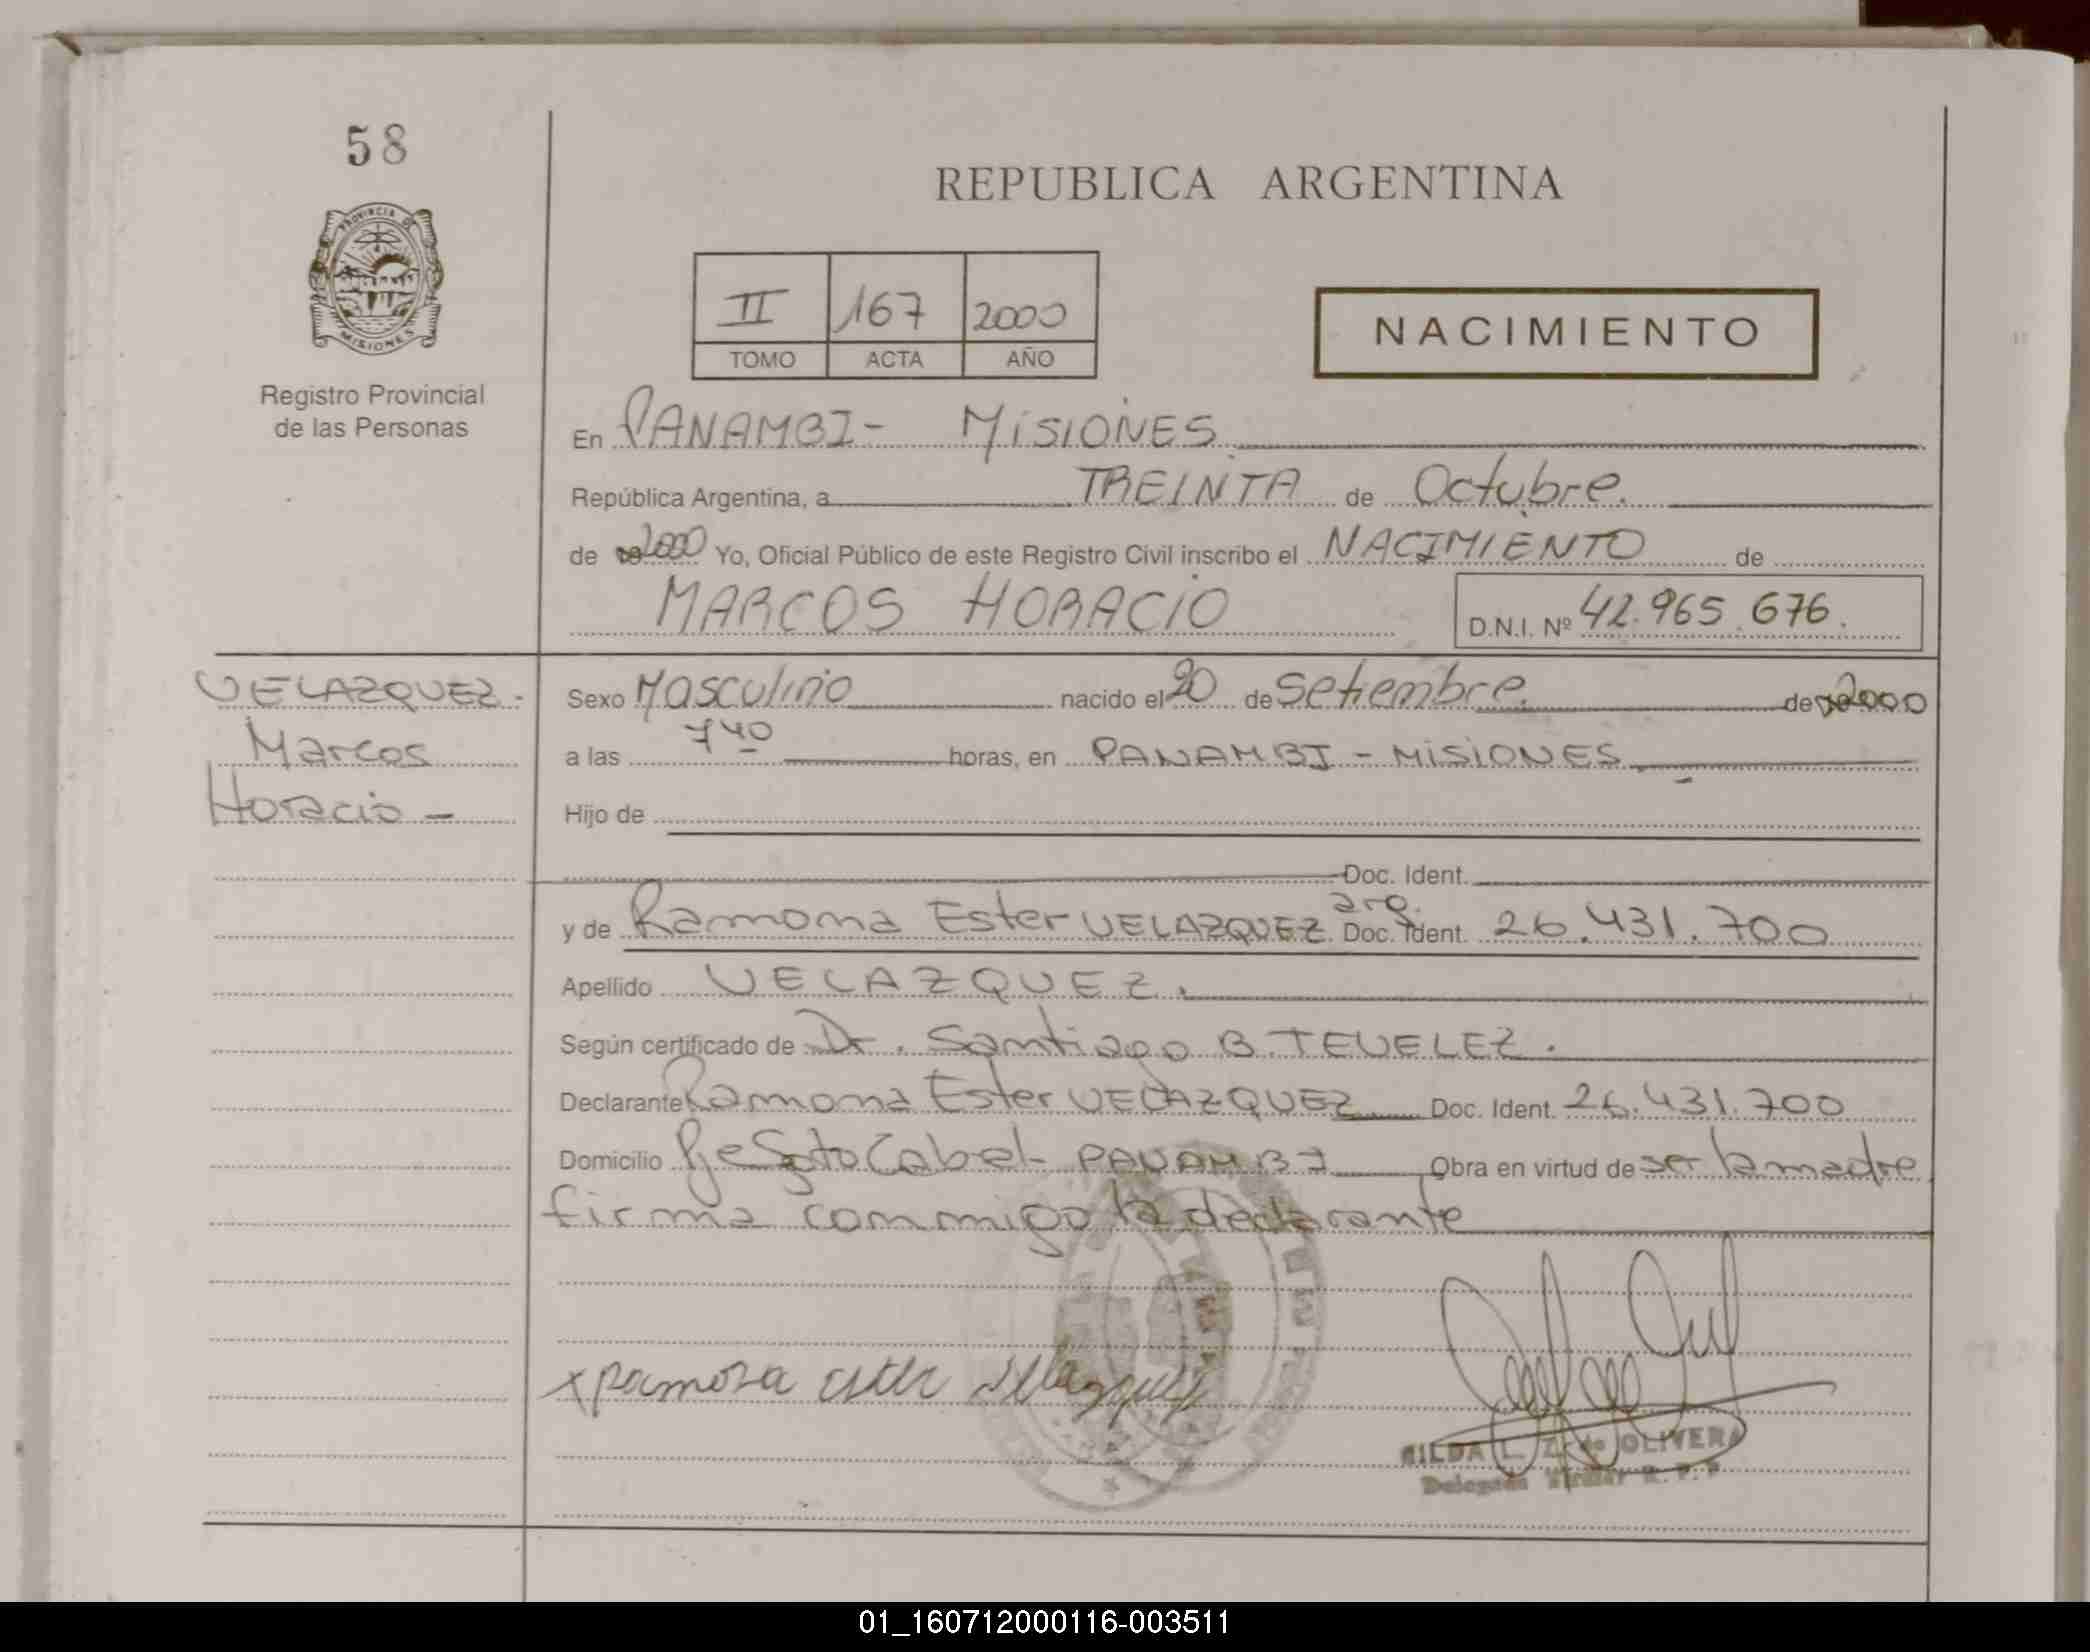 58
REPUBLICA ARGENTINA
PROVINCIA DE
MISIONES
II 167 2000
TOMO ACTA AÑO
NACIMIENTO
Registro Provincial
de las Personas
En PANAMBI - MISIONES
República Argentina, a TREINTA de Octubre.
de 2000 Yo, Oficial Público de este Registro Civil inscribo el NACIMIENTO de
MARCOS HORACIO D.N.I. Nº 42.965.676.
VELAZQUEZ.
Marcos
Horacio -
Sexo Masculino nacido el 20 de Setiembre. de 2000
a las 7 40 horas, en PANAMBI - MISIONES.
Hijo de
Doc. Ident.
y de Ramona Ester VELAZQUEZ Doc. Ident. arg. 26.431.700
Apellido VELAZQUEZ.
Según certificado de Dr. Santiago B. TEVELEZ.
Declarante Ramona Ester VELAZQUEZ Doc. Ident. 26.431.700
Domicilio PANAMBI Obra en virtud de ser la madre
firma conmigo la declarante
x Ramona ester Velazquez
GILDA L. Z. de OLIVERA
Delegada Titular R. P. P.
01_160712000116-003511